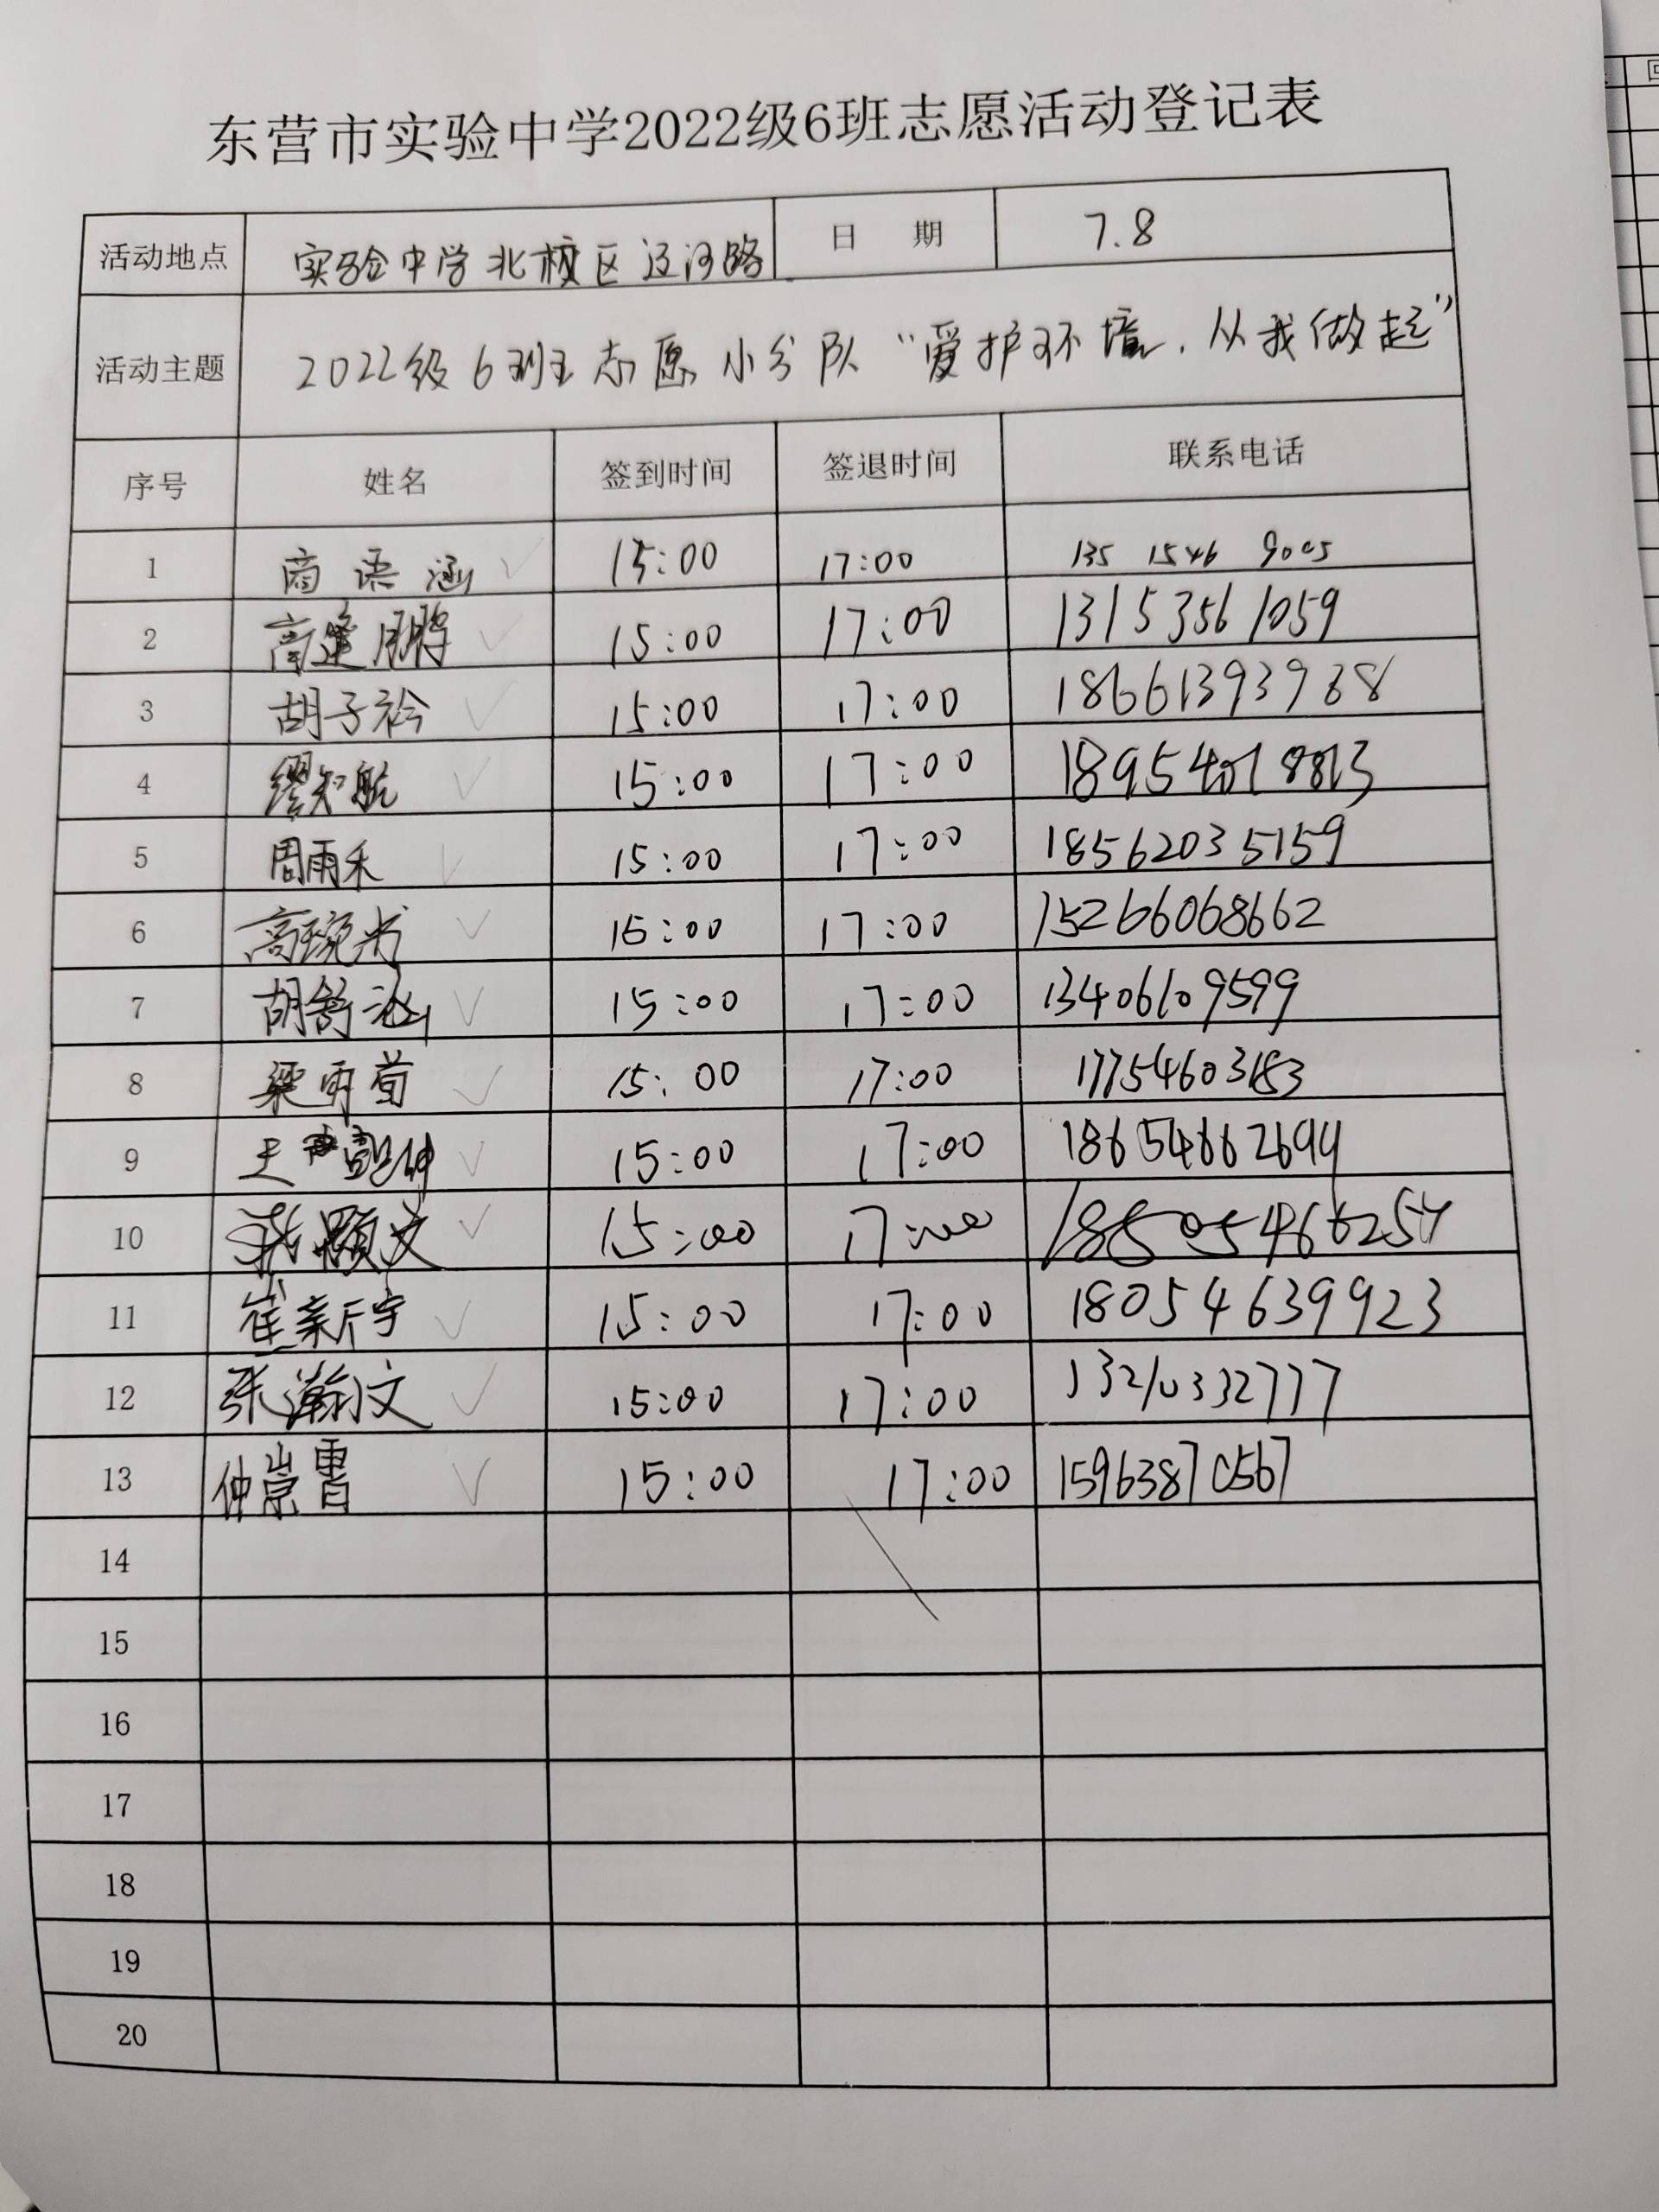 东营市实验中学2022级6班志愿活动登记表
活动地点 实验中学北校区辽河路 日 期 7.8
活动主题 2022级6班志愿小分队“爱护环境，从我做起”
序号 姓名 签到时间 签退时间 联系电话
1 商语涵 15:00 17:00 135 1546 9005
2 高逢鹏 15:00 17:00 13153561059
3 胡子衿 15:00 17:00 18661393938
4 缪知航 15:00 17:00 18954018813
5 周雨禾 15:00 17:00 18562035159
6 高琬书 15:00 17:00 15266068662
7 胡舒 15:00 17:00 13406109599
8 梁雨萱 15:00 17:00 17754603183
9 王 15:00 17:00 18654662694
10 15:00 17:00
11 崔新宇 15:00 17:00 18054639923
12 张瀚文 15:00 17:00 13210332777
13 仲崇 15:00 17:00 15963870567
14
15
16
17
18
19
20